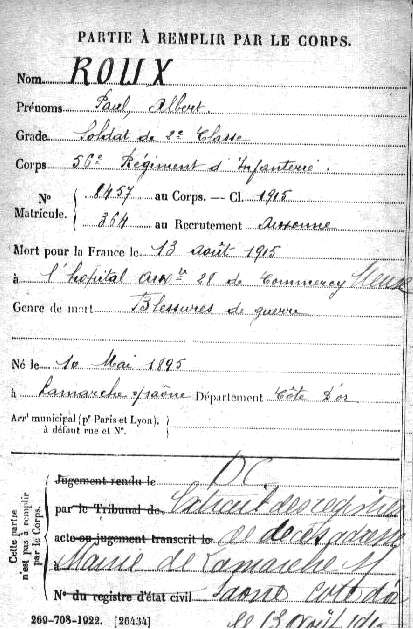 PARTIE À REMPLIR PAR LE CORPS.
Nom ROUX
Prénoms Paul, Albert.
Grade Soldat de 2e Classe
Corps 56e Régiment d'Infanterie.
N° Matricule. { 8457 au Corps. — Cl. 1915
364 au Recrutement Auxonne
Mort pour la France le 13 août 1915
à l'hôpital auxre 28 de Commercy Meuse
Genre de mort Blessures de guerre
Né le 10 Mai 1895
à Lamarche s/Saône Département Côte d'or
Arrt municipal (pr Paris et Lyon), à défaut rue et N°.
Cette partie n'est pas à remplir par le Corps.
Jugement rendu le DC
par le Tribunal de Extrait des registres
acte ou jugement transcrit le de décès
Mairie de Lamarche s/
N° du registre d'état civil Saone cote d'or
le 13 août
269-708-1922. [26434]